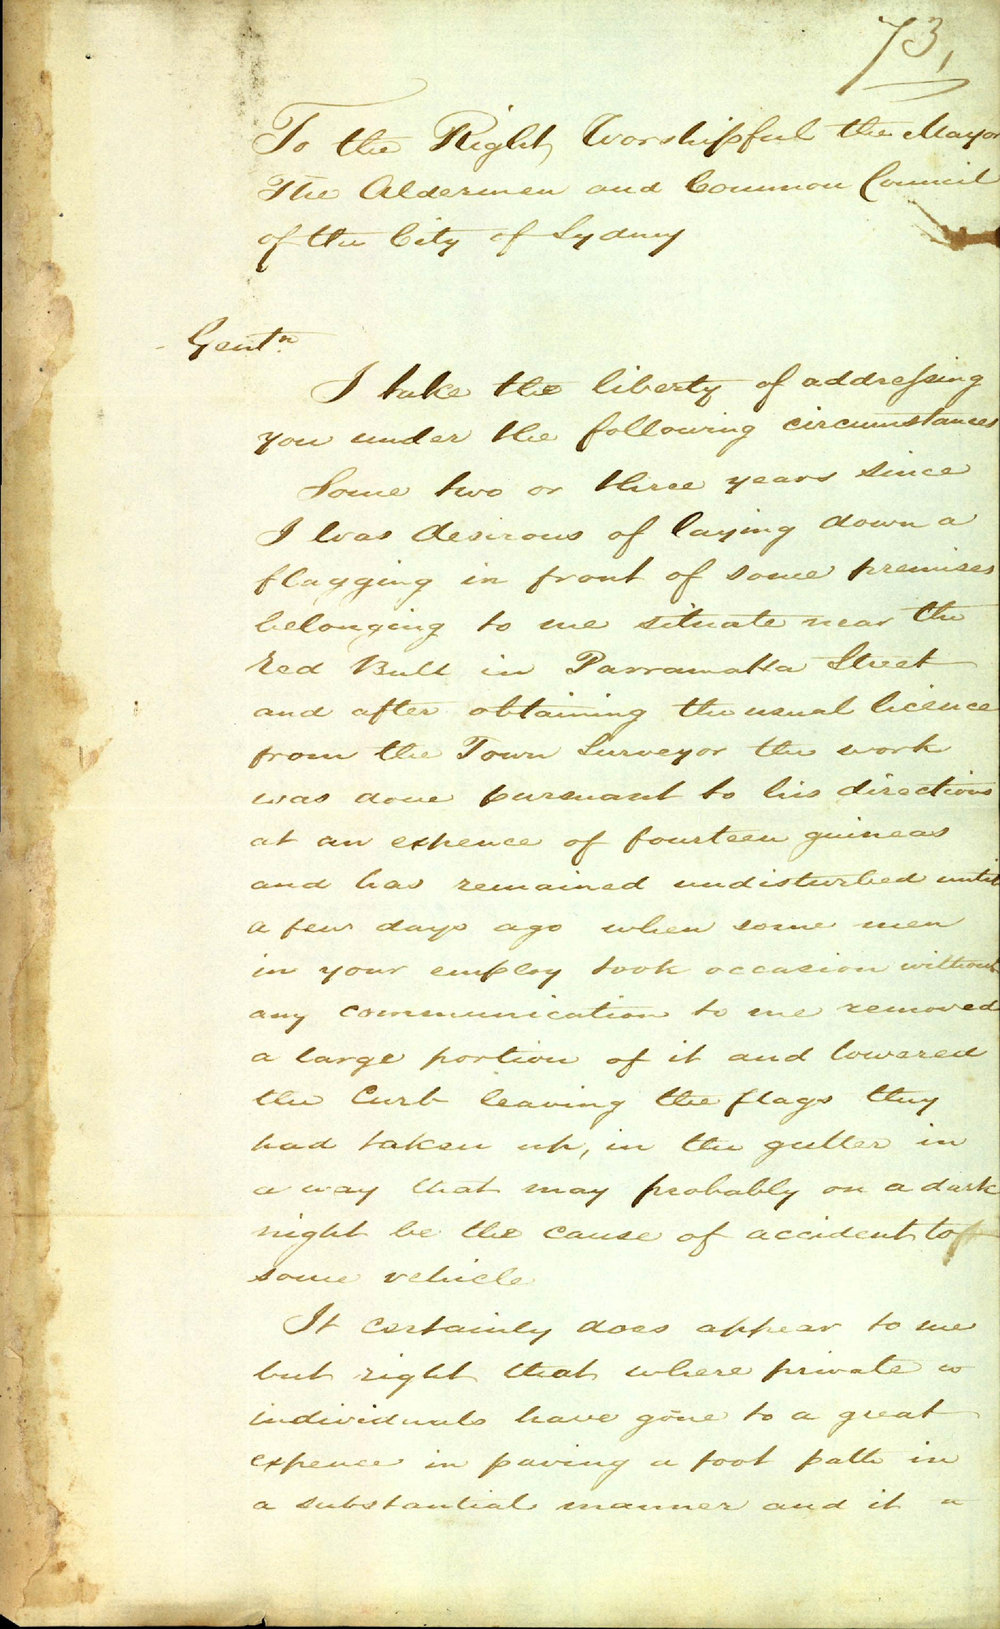 73,
To the Right Worshipful the Mayor
The Aldermen and Common Council
of the City of Sydney
Gentn
I take the liberty of addressing
you under the following circumstances
Some two or three years since
I was desirous of laying down a
flagging in front of some premises
belonging to me situate near the
Red Bull in Parramatta Street
and after obtaining the usual licence
from the Town Surveyor the work
was done pursuant to his directions
at an expence of fourteen guineas
and has remained undisturbed until
a few days ago when some men
in your employ took occasion without
any communication to me removed
a large portion of it and lowered
the Curb leaving the flags they
had taken up, in the gutter in
a way that may probably on a dark
night be the cause of accident to
some vehicle
It certainly does appear to me
but right that where private
individuals have gone to a great
expence in paving a foot path in
a substantial manner and it